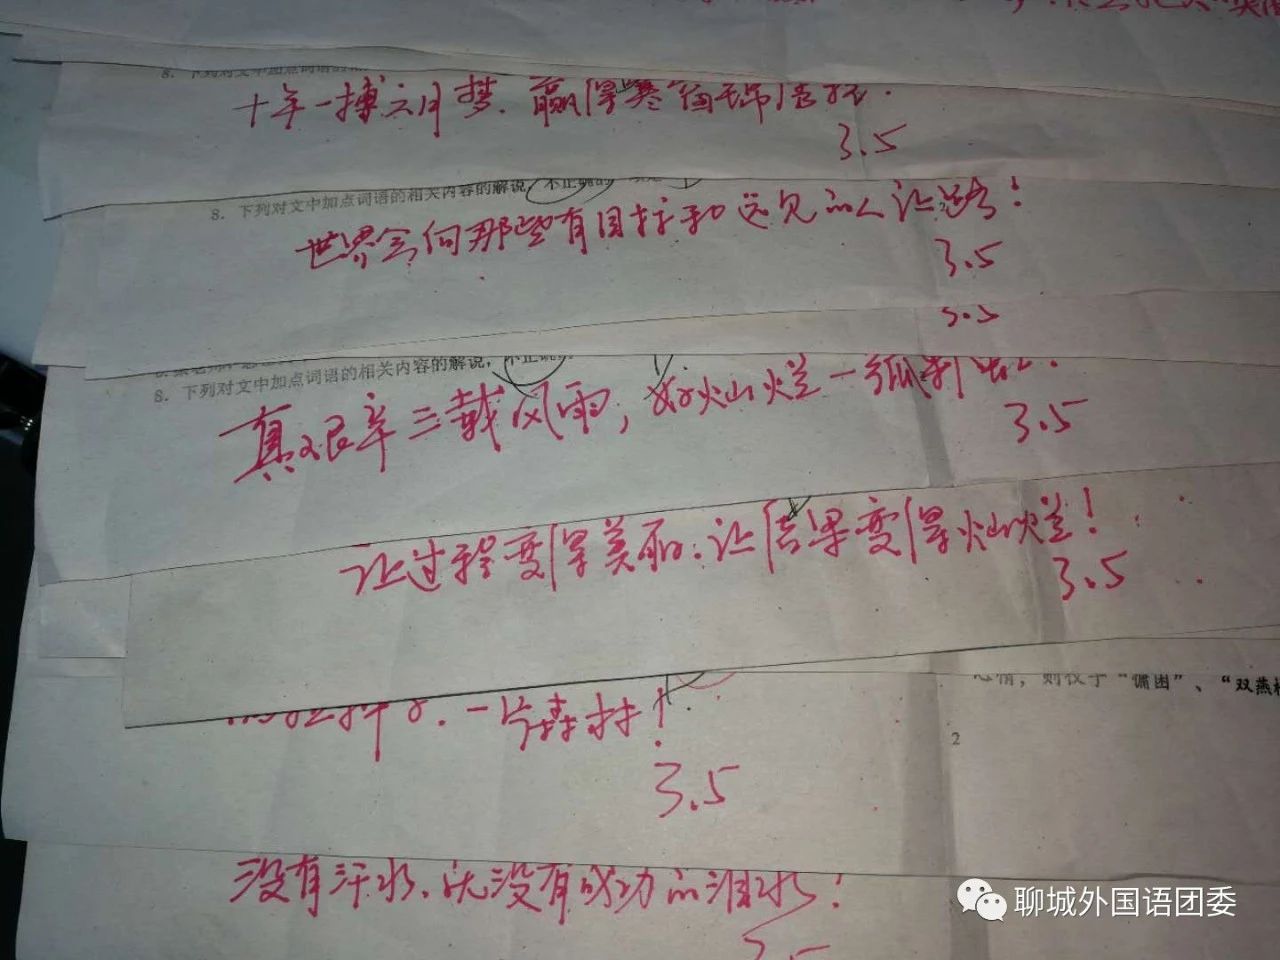 8. 下列对文中加点词语的相
十年一搏六月梦, 赢得寒窗
3.5
8. 下列对文中加点词语的相关内容的解说, 不正确的
世界会向那些有目标和远见的人让路!
3.5
3.5
8. 下列对文中加点词语的相关内容的解说, 不正确
真艰辛三载风雨, 好灿烂一
3.5
让过程变得美丽; 让结果变得灿烂!
3.5
心情, 则仅于“慵困”、“双燕
一片森林!
2
3.5
没有汗水, 就没有成功的泪水!
3.5
聊城外国语团委